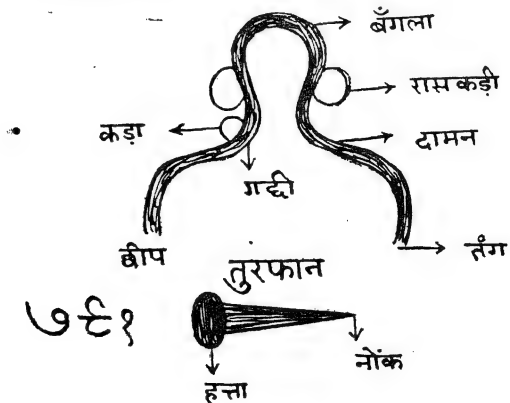 बँगला
रासकड़ी
कड़ा
दामन
गद्दी
बीप
तंग
तुरफान
७९१
नोंक
हत्ता